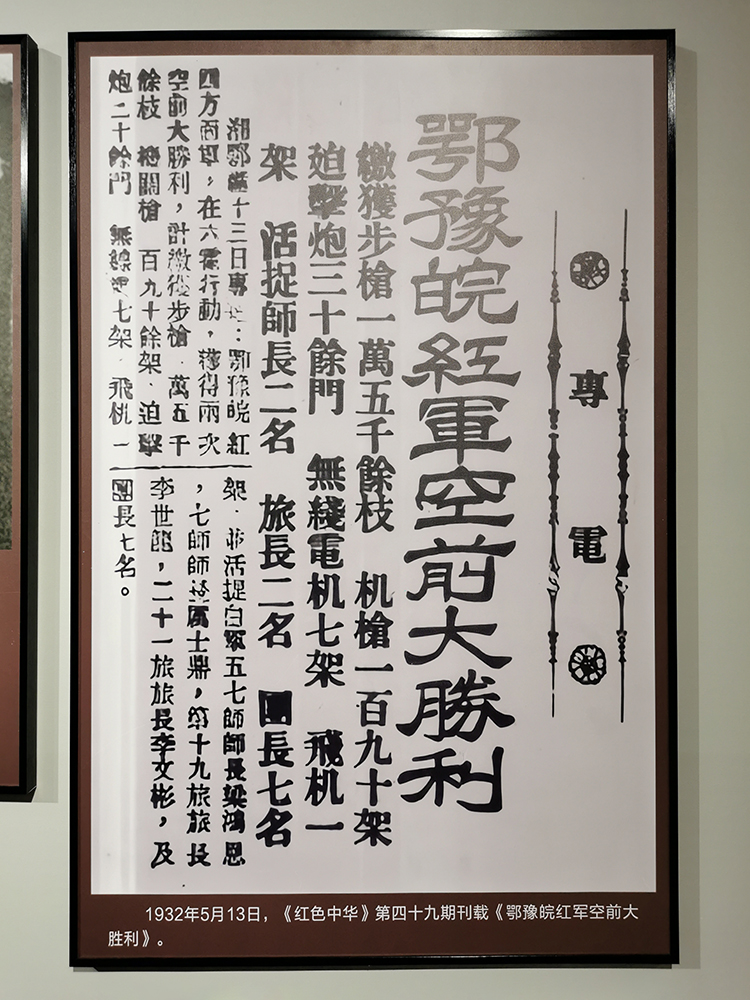 專電
鄂豫皖紅軍空前大勝利
繳獲步槍一萬五千餘枝 机槍一百九十架
廹擊炮三十餘門 無綫電机七架 飛机一
架 活捉師長二名 旅長二名 團長七名
湘鄂十三日專：鄂豫皖紅
四方面軍，在六霍行動，獲得兩次
空前大勝利，計繳獲步槍 萬五千
餘枝 機關槍 百九十餘架 迫擊
炮二十餘門 無線電七架 飛机一
架 並活捉白軍五七師師長梁鴻恩
，七師師厲士鼎，第十九旅旅長
李世龍，二十一旅旅長李文彬，及
團長七名。
1932年5月13日，《红色中华》第四十九期刊载《鄂豫皖红军空前大
胜利》。